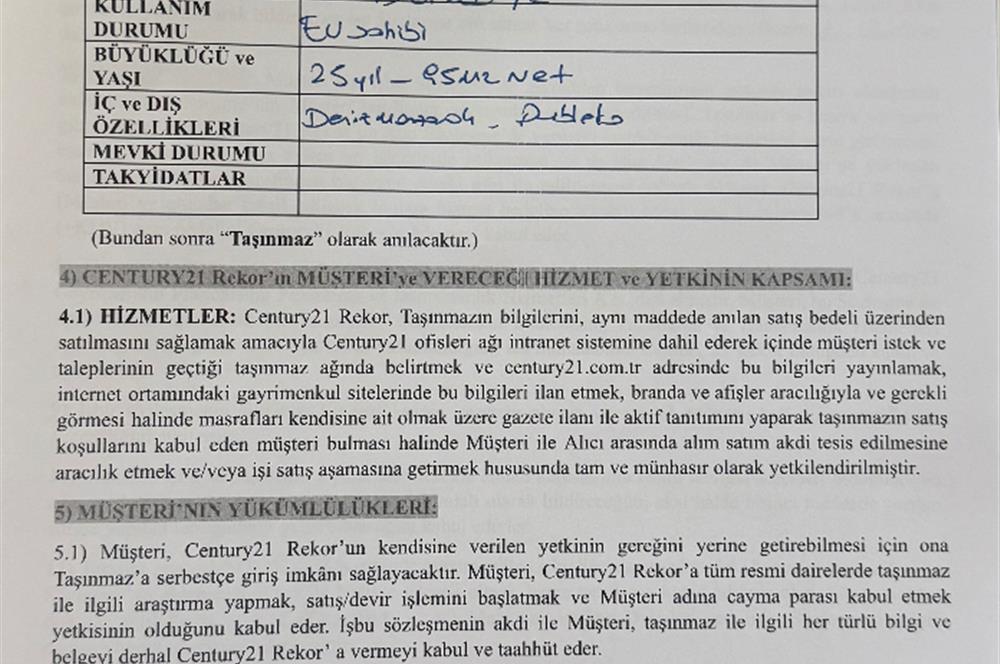 KULLANIM
DURUMU
Ev sahibi
BÜYÜKLÜĞÜ ve
YAŞI
25 yıl - 95m2 net
İÇ ve DIŞ
ÖZELLİKLERİ
Deniz manzaralı - Dubleks
MEVKİ DURUMU
TAKYİDATLAR
(Bundan sonra “Taşınmaz” olarak anılacaktır.)
4) CENTURY21 Rekor’ın MÜŞTERİ’ye VERECEĞİ HİZMET ve YETKİNİN KAPSAMI:
4.1) HİZMETLER: Century21 Rekor, Taşınmazın bilgilerini, aynı maddede anılan satış bedeli üzerinden
satılmasını sağlamak amacıyla Century21 ofisleri ağı intranet sistemine dahil ederek içinde müşteri istek ve
taleplerinin geçtiği taşınmaz ağında belirtmek ve century21.com.tr adresinde bu bilgileri yayınlamak,
internet ortamındaki gayrimenkul sitelerinde bu bilgileri ilan etmek, branda ve afişler aracılığıyla ve gerekli
görmesi halinde masrafları kendisine ait olmak üzere gazete ilanı ile aktif tanıtımını yaparak taşınmazın satış
koşullarını kabul eden müşteri bulması halinde Müşteri ile Alıcı arasında alım satım akdi tesis edilmesine
aracılık etmek ve/veya işi satış aşamasına getirmek hususunda tam ve münhasır olarak yetkilendirilmiştir.
5) MÜŞTERİ’NIN YÜKÜMLÜLÜKLERİ:
5.1) Müşteri, Century21 Rekor’un kendisine verilen yetkinin gereğini yerine getirebilmesi için ona
Taşınmaz’a serbestçe giriş imkânı sağlayacaktır. Müşteri, Century21 Rekor’a tüm resmi dairelerde taşınmaz
ile ilgili araştırma yapmak, satış/devir işlemini başlatmak ve Müşteri adına cayma parası kabul etmek
yetkisinin olduğunu kabul eder. İşbu sözleşmenin akdi ile Müşteri, taşınmaz ile ilgili her türlü bilgi ve
belgeyi derhal Century21 Rekor’ a vermeyi kabul ve taahhüt eder.